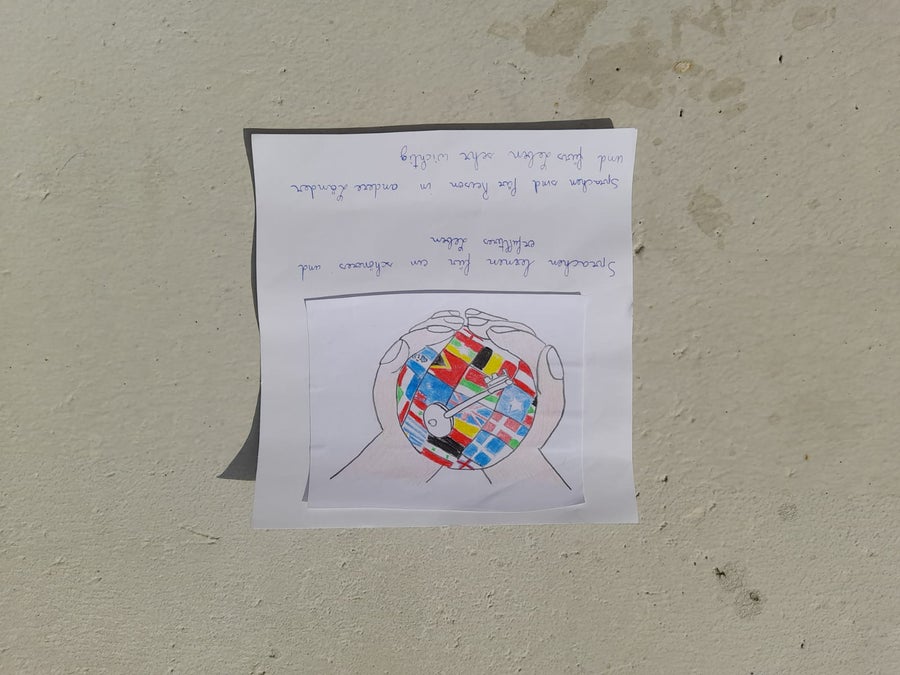 Sprachen lernen für ein schöneres und
erfüllteres Leben
Sprachen sind für Reisen in andere Länder
und fürs Leben sehr wichtig